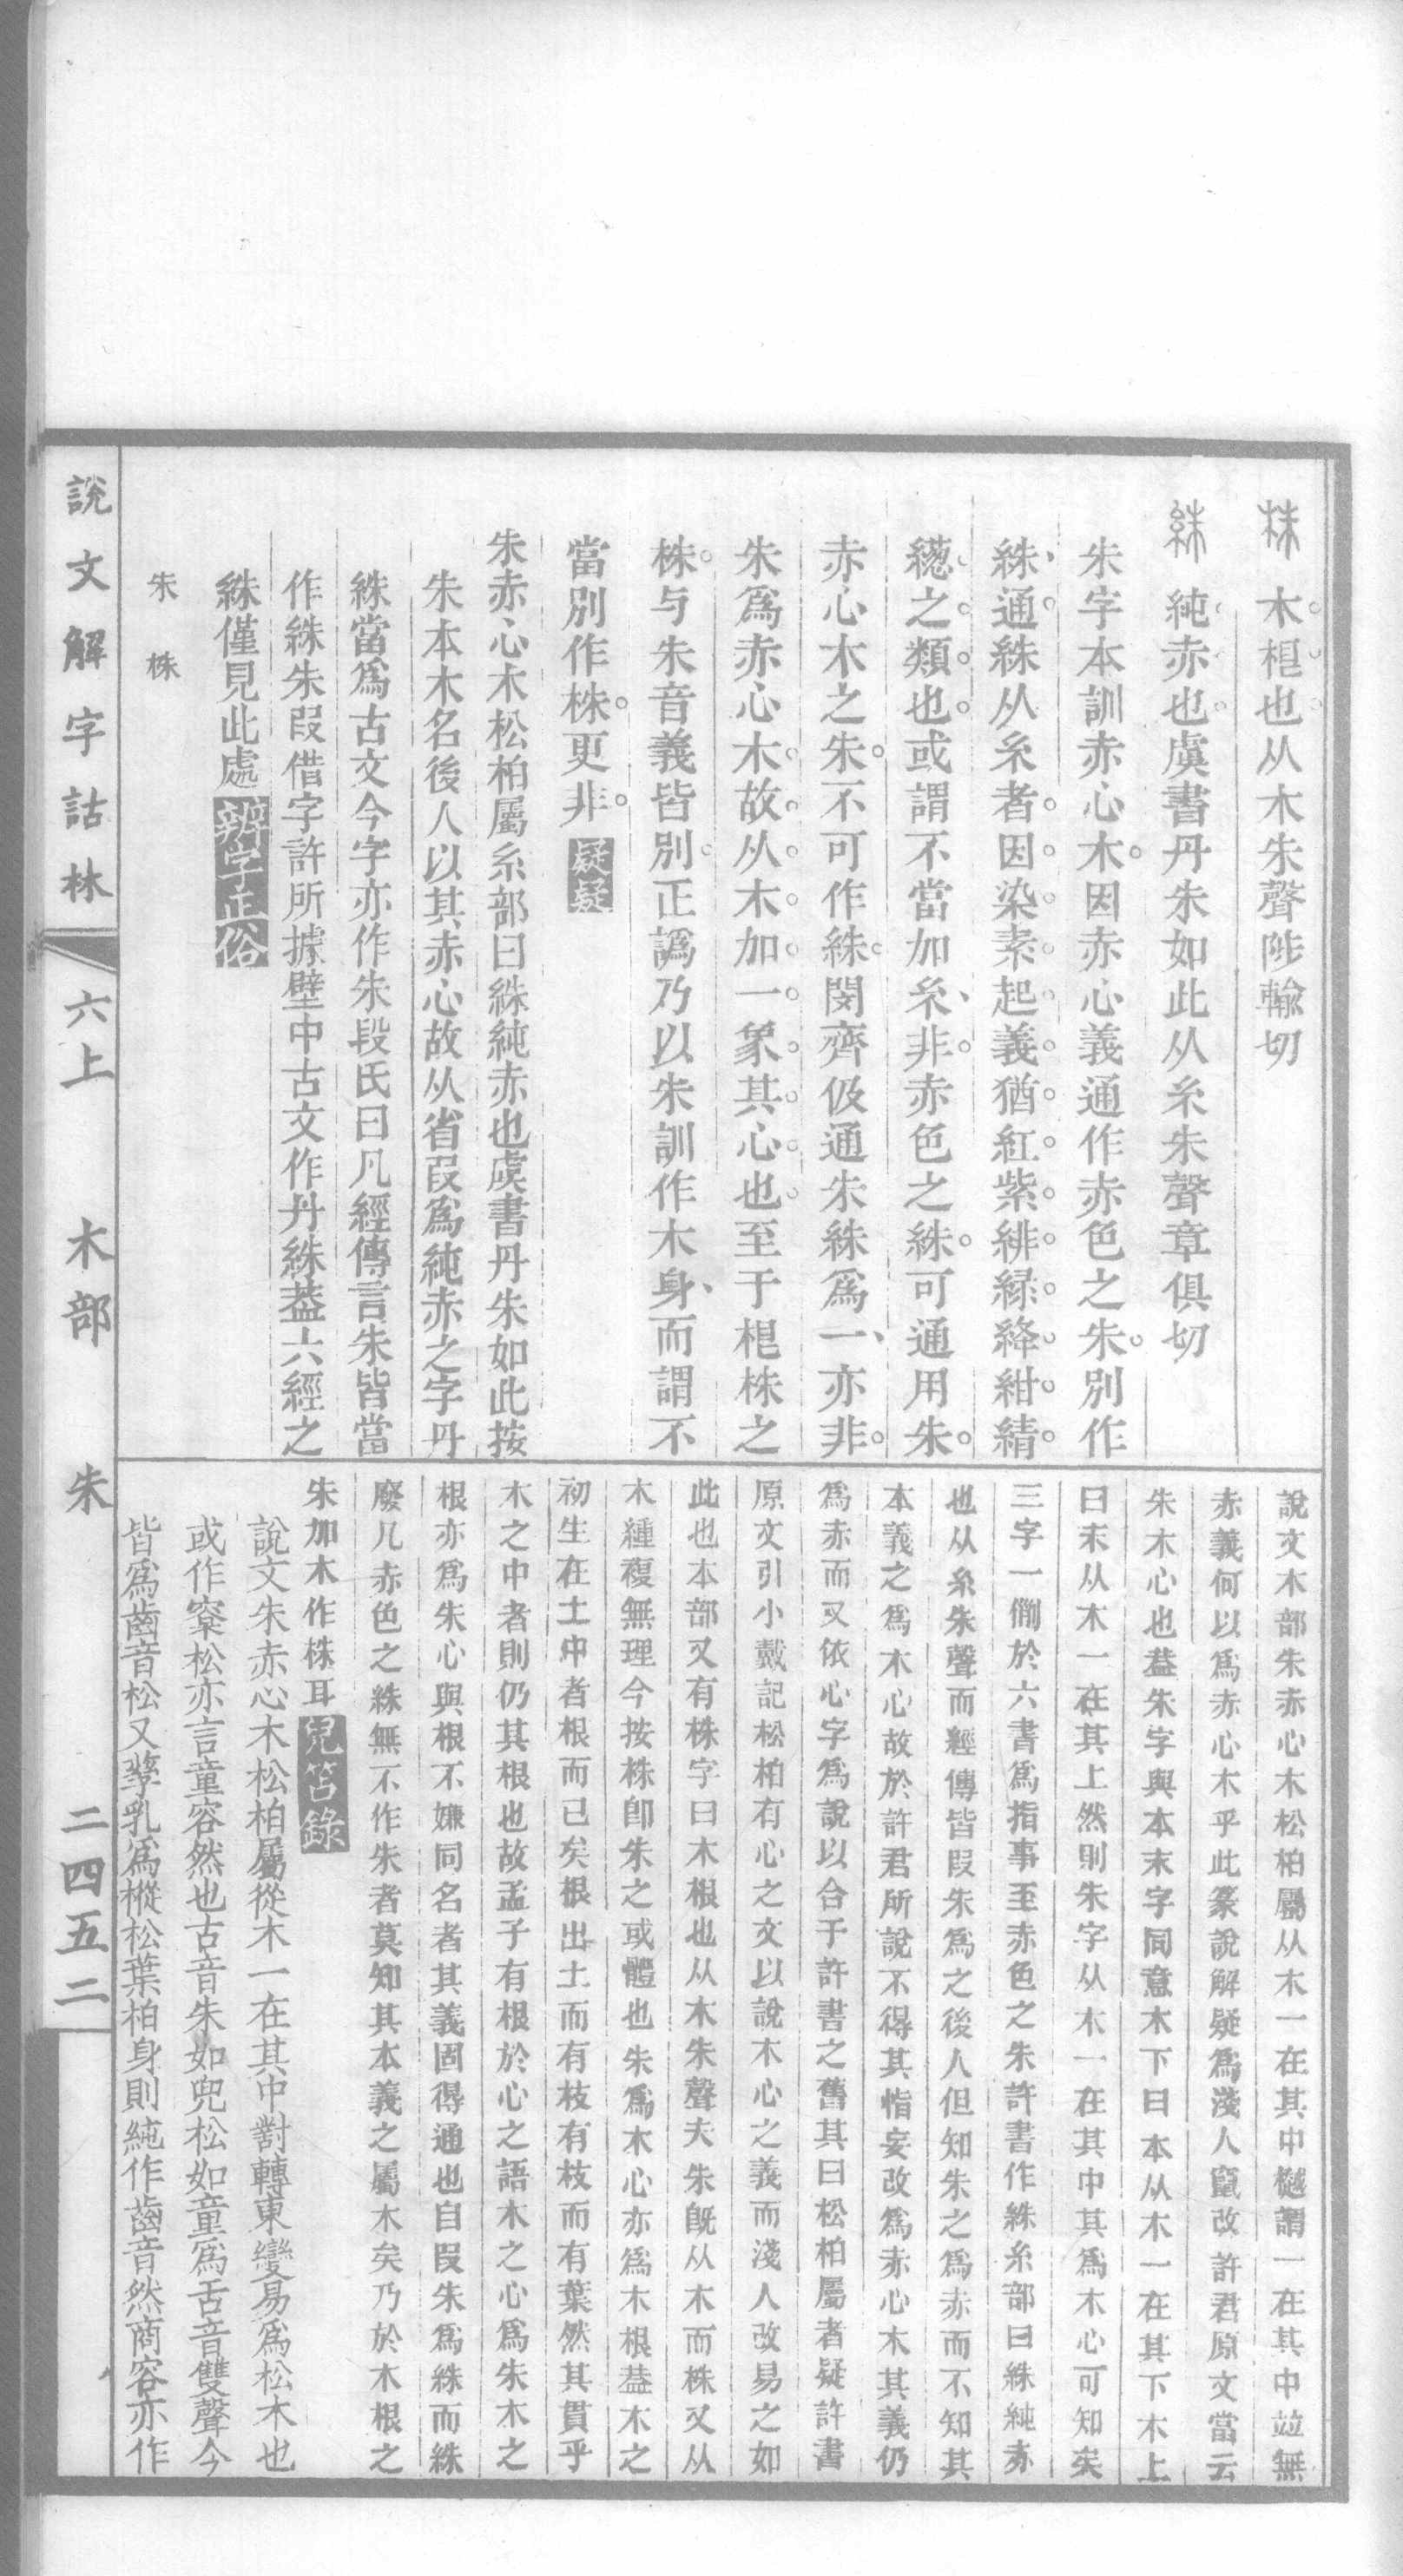 株 木根也从木朱聲陟輸切
絑 純赤也虞書丹朱如此从糸朱聲章俱切
朱字本訓赤心木因赤心義通作赤色之朱別作
絑通絑从糸者因染素起義猶紅紫緋綠絳紺綪
之類也或謂不當加糸非赤色之絑可通用朱
赤心木之朱不可作絑閔齊伋通朱絑爲一亦非
朱爲赤心木故从木加一象其心也至于根株之
株与朱音義皆別正譌乃以朱訓作木身而謂不
當別作株更非 疑疑
朱赤心木松柏屬糸部曰絑純赤也虞書丹朱如此按
朱本木名後人以其赤心故从省叚爲純赤之字丹
絑當爲古文今字亦作朱段氏曰凡經傳言朱皆當
作絑朱叚借字許所據壁中古文作丹絑葢六經之
絑僅見此處 辨字正俗
說文木部朱赤心木松柏屬从木一在其中樾謂一在其中竝無
赤義何以爲赤心木乎此篆說解疑爲淺人竄改許君原文當云
朱木心也葢朱字與本末字同意木下曰本从木一在其下木上
曰末从木一在其上然則朱字从木一在其中其爲木心可知矣
三字一例於六書爲指事至赤色之朱許書作絑糸部曰絑純赤
也从糸朱聲而經傳皆叚朱爲之後人但知朱之爲赤而不知其
本義之爲木心故於許君所說不得其恉妄改爲赤心木其義仍
爲赤而又依心字爲說以合于許書之舊其曰松柏屬者疑許書
原文引小戴記松柏有心之文以說木心之義而淺人改易之如
此也本部又有株字曰木根也从木朱聲夫朱旣从木而株又从
木緟複無理今按株卽朱之或體也朱爲木心亦爲木根葢木之
初生在土中者根而已矣根出土而有枝有枝而有葉然其貫乎
木之中者則仍其根也故孟子有根於心之語木之心爲朱木之
根亦爲朱心與根不嫌同名者其義固得通也自叚朱爲絑而絑
廢凡赤色之絑無不作朱者莫知其本義之屬木矣乃於木根之
朱加木作株耳 兒笘錄
說文朱赤心木松柏屬從木一在其中對轉東變易爲松木也
或作㮤松亦言童容然也古音朱如兜松如童爲舌音雙聲今
皆爲齒音松又孳乳爲樅松葉柏身則純作齒音然商容亦作
朱 株
說文解字詁林 六上 木部 朱 二四五二